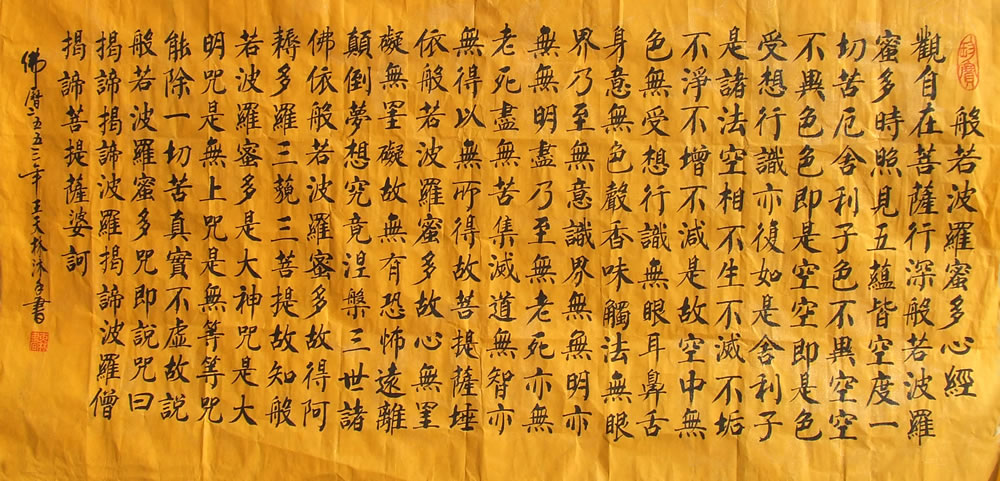 般若波羅蜜多心經
觀自在菩薩行深般若波羅
蜜多時照見五蘊皆空度一
切苦厄舍利子色不異空空
不異色色即是空空即是色
受想行識亦復如是舍利子
是諸法空相不生不滅不垢
不淨不增不減是故空中無
色無受想行識無眼耳鼻舌
身意無色聲香味觸法無眼
界乃至無意識界無無明亦
無無明盡乃至無老死亦無
老死盡無苦集滅道無智亦
無得以無所得故菩提薩埵
依般若波羅蜜多故心無罣
礙無罣礙故無有恐怖遠離
顛倒夢想究竟涅槃三世諸
佛依般若波羅密多故得阿
耨多羅三藐三菩提故知般
若波羅蜜多是大神咒是大
明咒是無上咒是無等等咒
能除一切苦真實不虛故說
般若波羅蜜多咒即說咒曰
揭諦揭諦波羅揭諦波羅僧
揭諦菩提薩婆訶
佛曆二五五三年王天林沐手書